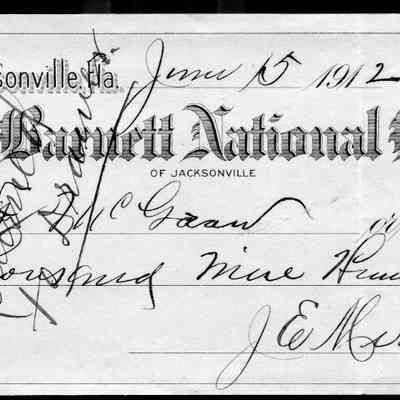 sonville, Fla. June 15 1912
Barnett National
OF JACKSONVILLE
McGraw or
ousand Nine Hun
J E M